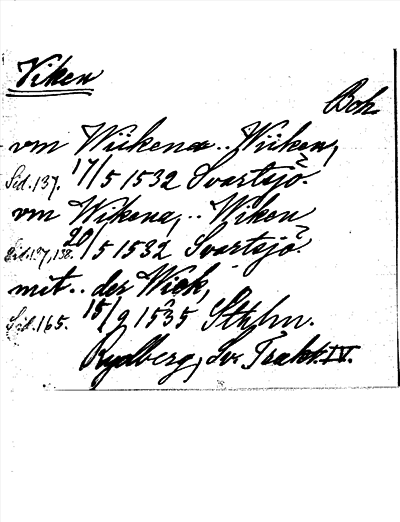 Viken
Boh.
vm Wiikena .. Wiiken,
Sid. 137. 17/5 1532 Svartsjö.
vm Wikena, .. Wiken
Sid. 137, 138. 20/5 1532 Svartsjö.
mit .. der Wiek,
Sid. 165. 15/9 1535 Sthlm.
Rydberg, Sv. Trakt. IV.